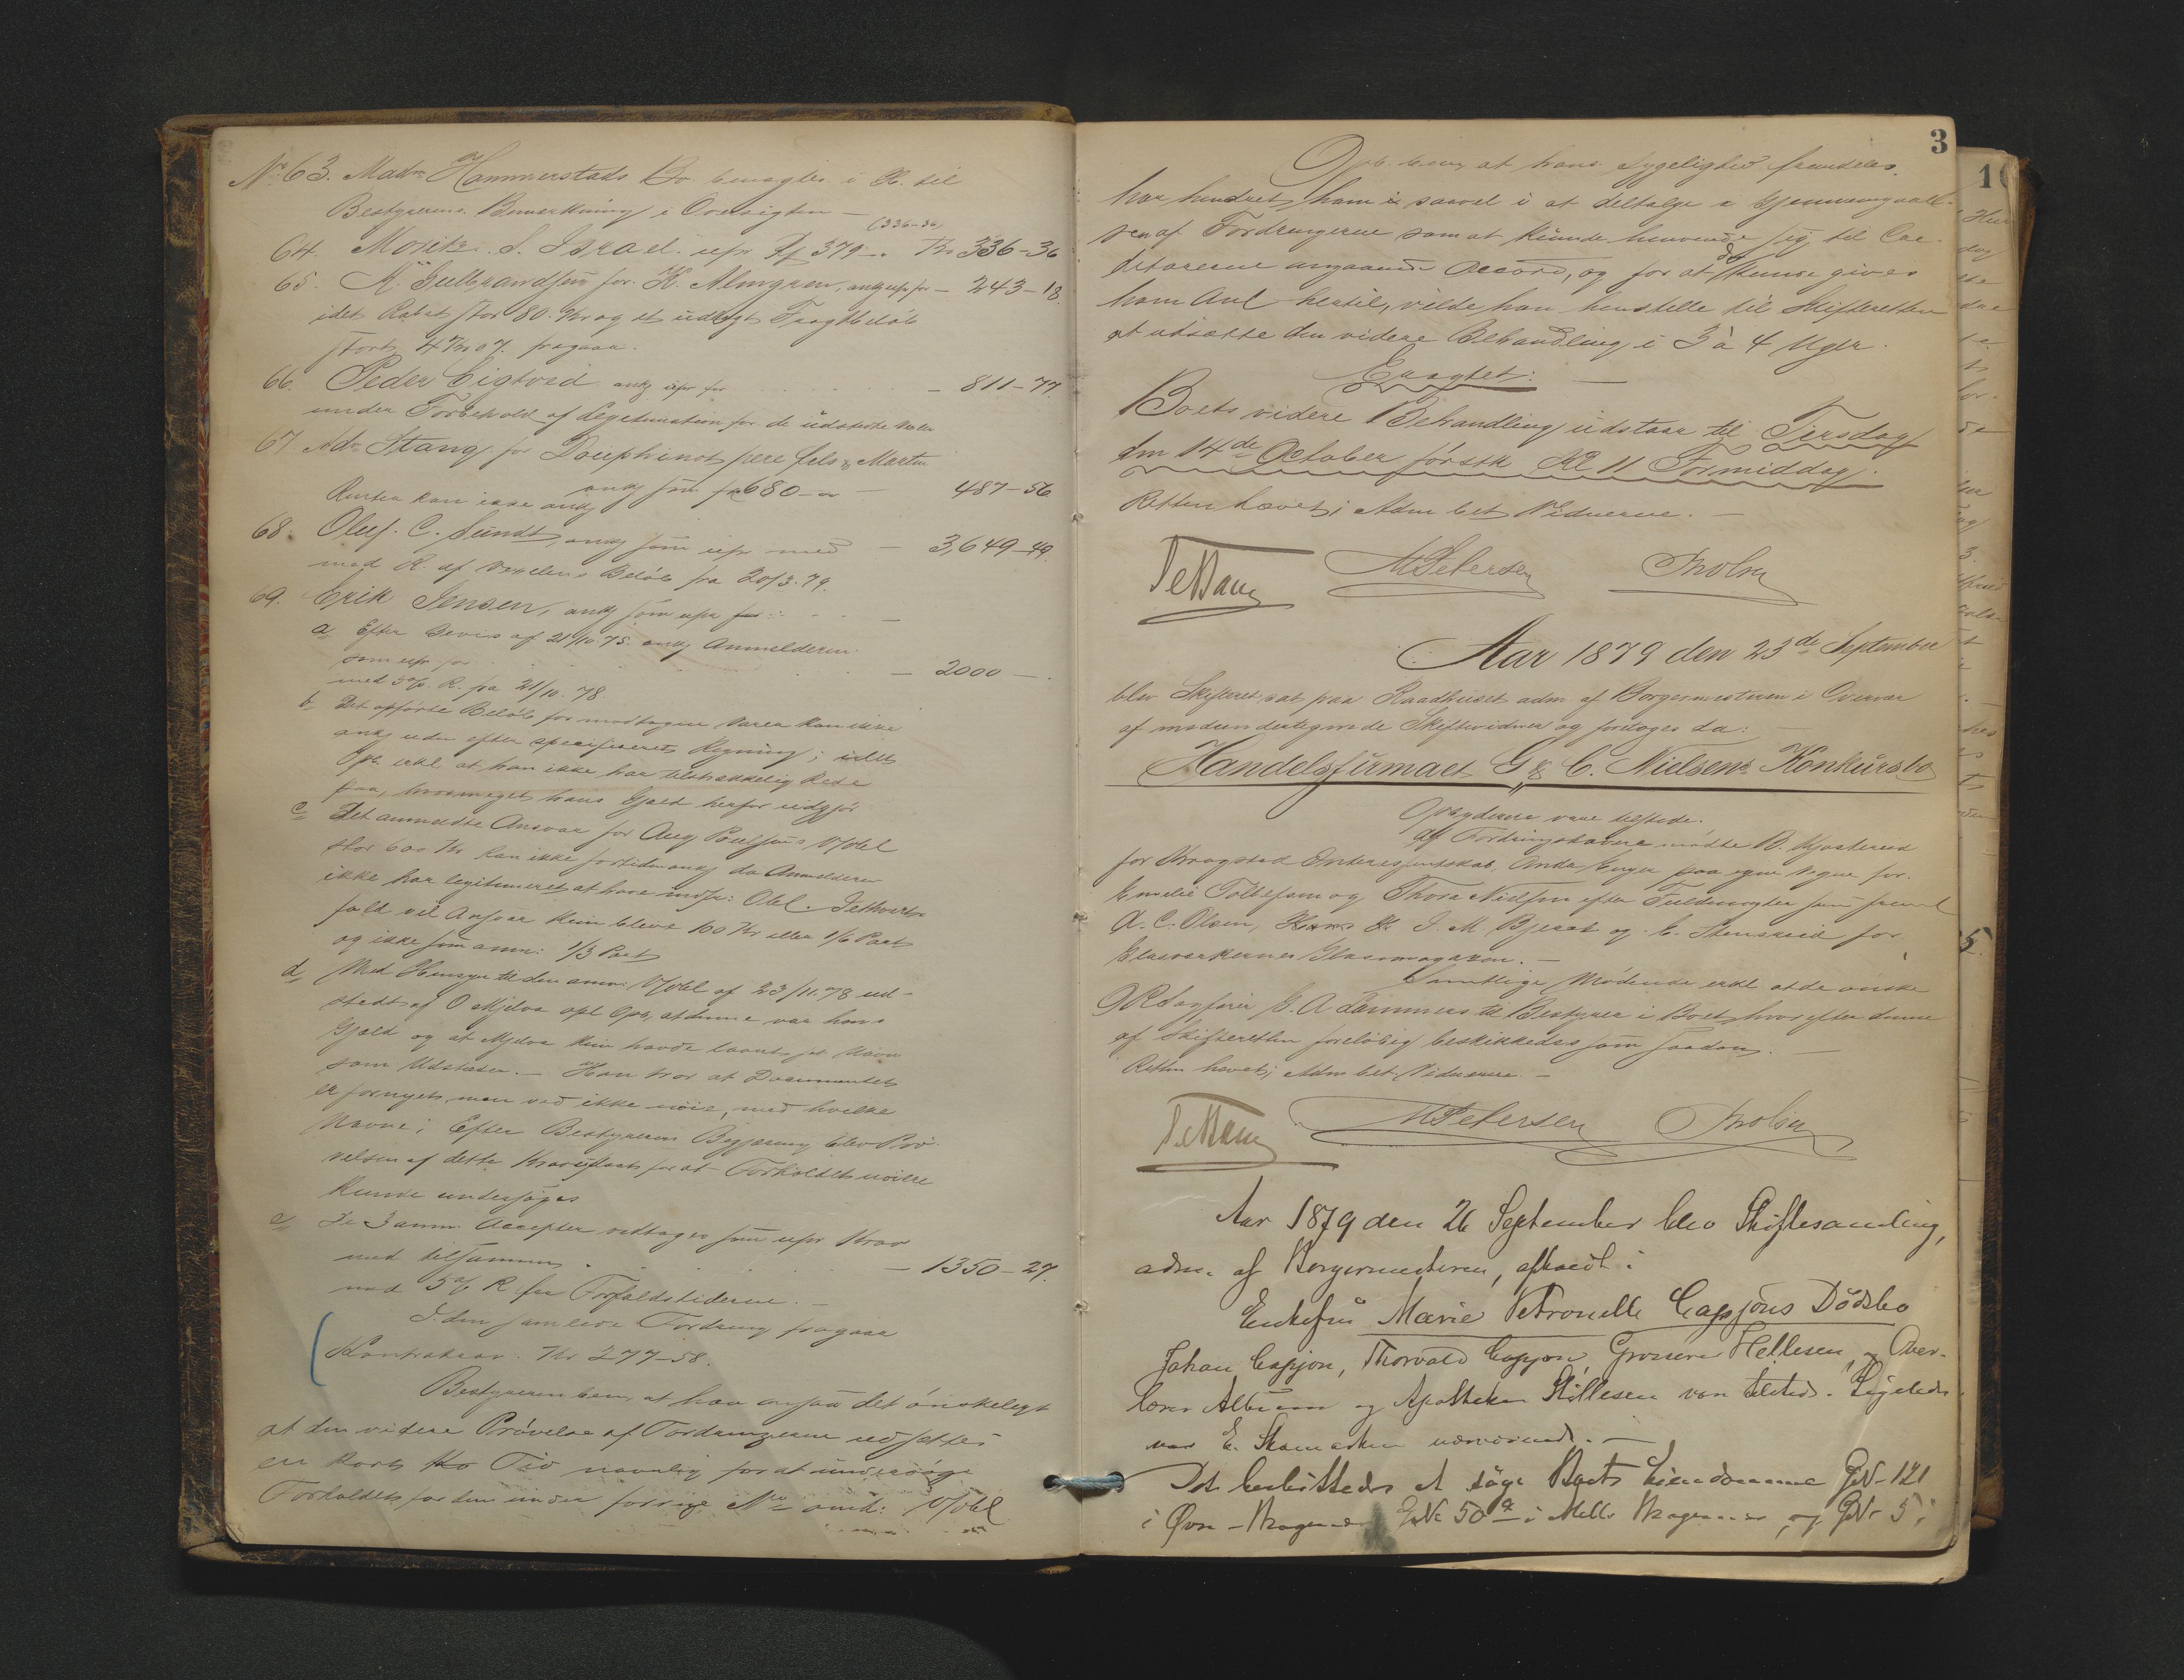 No 63. Madm Hammerstads Bo. henvgtes i R. til
Bestyrerens Bemærkning i Oversigten —
(336-36)
64. Moritz. S. Israel. upr 379 — Kr 336-36
65. A. Gulbrandsen for H. Almgren, ank upr for — 243-18.
idet Rabat stor 80. Kr og et udlagt Fragtbeløb
stort 4 Kr 07. fragaar.
66. Peder Eigtved ank upr for — 811-77.
under Forbehold af Legitimation for de udstedte
67 Adv Stang for Dauphinot pere fils & Martin
ank som fr 680 — 487-56
Renten kan ikke ank
68. Oluf. C. Sundt, ank som upr med — 3,649-49.
med R. af Vexelens Beløb fra 20/3.79.
69. Erik Jensen, ank som upr for —
a Efter Bevis af 21/10 75. ank Anmelderen
som upr for — 2000 —.
med 5% R. fra 21/10. 78
b Det opførte Beløb for modtagne Varer kan ikke
ank uden efter specificeret Regning; idet
Opb. erkl. at han ikke har tilstrækkelig Rede
paa, hvormeget hans Gjæld herfor udgjør
c Det anmeldte Ansvar for Aug Poulsens V/Obl
stor 600 Kr kan ikke fortiden ank da Anmelderen
ikke har legitimeret at have indfr: Obl. I ethvert
fald vil Ansvar kun blive 100 Kr eller 1/6 Part
og ikke som anm: 1/3 Part
d Med Hensyn til den anm: V/Obl af 23/11.78 ud-
stedt af O Mjelva opl Opb, at denne var hans
Gjæld og at Mjelva kun havde laant sit Navn
som Udsteder. — Han tror at Documentet
er fornyet, men ved ikke nøie, med hvilke
Navne; Efter Bestyrerens Begjæring blev Prø-
velsen af dette Krav udsat for at Forholdet nøiere
kunde undersøges
e De 3 anm. Accepter vedtages som upr Krav
med tilsammen — 1350-27.
med 5% R fra Forfaldstiderne. —
I den samlede Fordring fragaar
Kontrakrav. Kr 277-58.
Bestyreren bem, at han ansaa det ønskeligt
at den videre Prøvelse af Fordringerne udsættes
en kort Tid navnlig for at undersøge
Forholdet for den under forrige No anm: V/Obl
3
Opb. bem, at hans Sygelighed fremdeles
har hindret ham i saavel i at deltage i Gjennemgaael-
sen af Fordringerne som at kunde henvende sig til Cre-
ditorerne angaaende Accord, og for at kunde gives
ham Anl hertil, vilde han henstille til Skifteretten
at udsætte den videre Behandling i 3 à 4 Uger.
Eragtet: —
Boets videre Behandling udstaar til Tirsdag
den 14de October førstk Kl 11 Formiddag.
Retten hævet; Adm bet Vidnerne. —
M Petersen Tholn
Aar 1879 den 23de September
blev Skifteret sat paa Raadhuset adm af Borgermesteren i Overvær
af medundertegnede Skiftevidner og foretoges da:
Handelsfirmaet G & C. Nielsens Konkursbo
Opbyderne vare tilstede.
Af Fordringshavere mødte B. Kjosterud
for Krogstad Interessentskab, Anda Enger paa egne Vegne for
Emelie Tollefsen og Thora Nielsen efter Fuldmagter som freml
A. C. Olsen, J. M Bjerat og C. Stensrud for
Glasværkernes Glasmagazin. —
Samtlige Mødende erkl at de ønske
O R Sagfører G. A Lammers til Bestyrer i Boet, hvorefter denne
af Skifteretten foreløbig beskikkedes som saadan. —
Retten hævet; Adm bet. Vidnerne. —
M Petersen Tholn
Aar 1879 den 26 September blev Skiftesamling,
adm. af Borgermesteren, afholdt i
Enkefru Marie Petronelle Cappjons Dødsbo
Johan Capjon, Thorvald Capjon, Grosserer Hellesen, og Over-
lærer Album og Apotheker Hillesen var tilsted. Ligeledes
var E. Skamarken nærværende. —
Det besluttedes at søge Boets Eiendomme GNr 121
i Øvre-Kragerø GNr 50a i Mell. Kragerø, og GNr 5 i